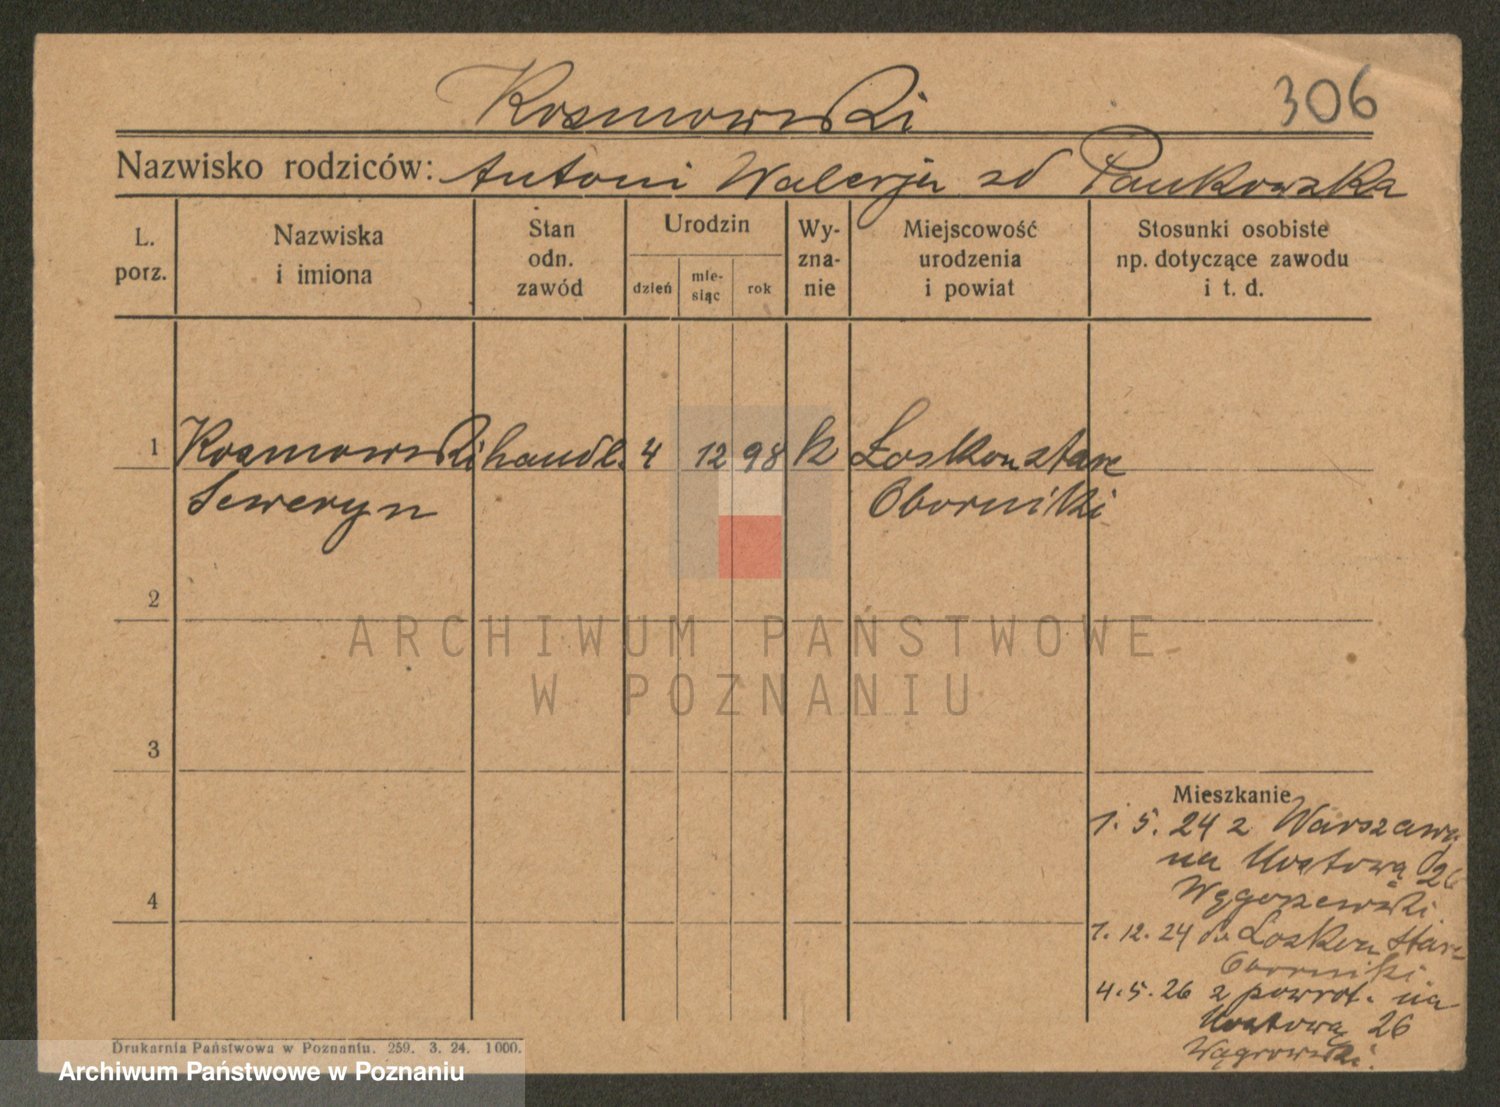 Kosmowski
306
Nazwisko rodziców: Antoni Walerja zd Pankowska
L. porz.
Nazwiska i imiona
Stan odn. zawód
Urodzin
dzień
mie-siąc
rok
Wy-zna-nie
Miejscowość urodzenia i powiat
Stosunki osobiste np. dotyczące zawodu i t. d.
1 Kosmowski handl. 4 12 98 k Łoskoń stare
Seweryn Oborniki
2
ARCHIWUM PAŃSTWOWE
W POZNANIU
3
Mieszkanie
1. 5. 24 z Warszawy
na 26
4
1. 12. 24 do Łoskoń Stare
Oborniki
4. 5. 26 z powrot. na
26
Drukarnia Państwowa w Poznaniu. 259. 3. 24. 1000.
Archiwum Państwowe w Poznaniu